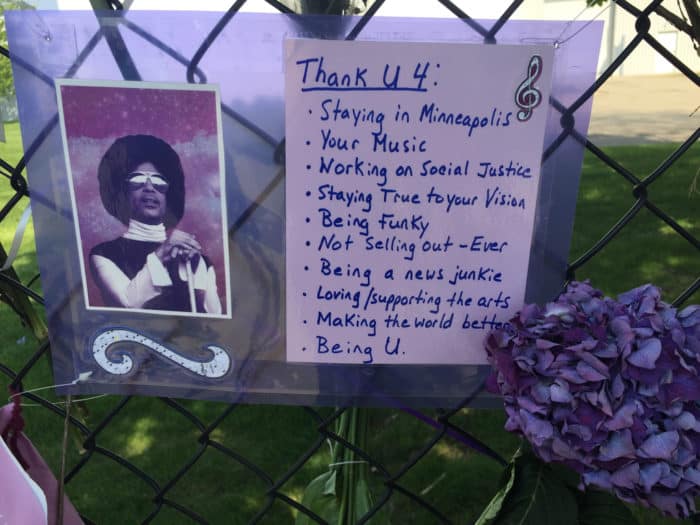 Thank U 4:
• Staying in Minneapolis
• Your Music
• Working on Social Justice
• Staying True to your Vision
• Being Funky
• Not Selling out - Ever
• Being a news junkie
• Loving/supporting the arts
• Making the world better
• Being U.